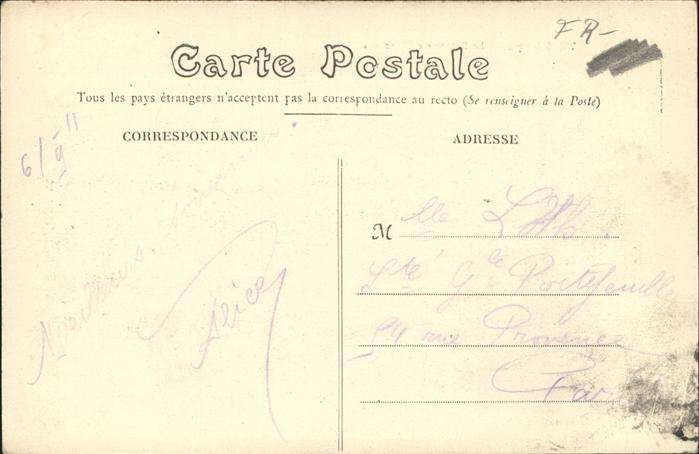 FR-
Carte Postale
Tous les pays étrangers n'acceptent pas la correspondance au recto (Se renseigner à la Poste)
CORRESPONDANCE
ADRESSE
6/9 11
M lle
Sté Gle Portefeuille
rue Provence
Par